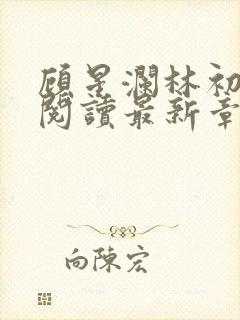 顾星瀾林初
閱讀最新章
向陳宏